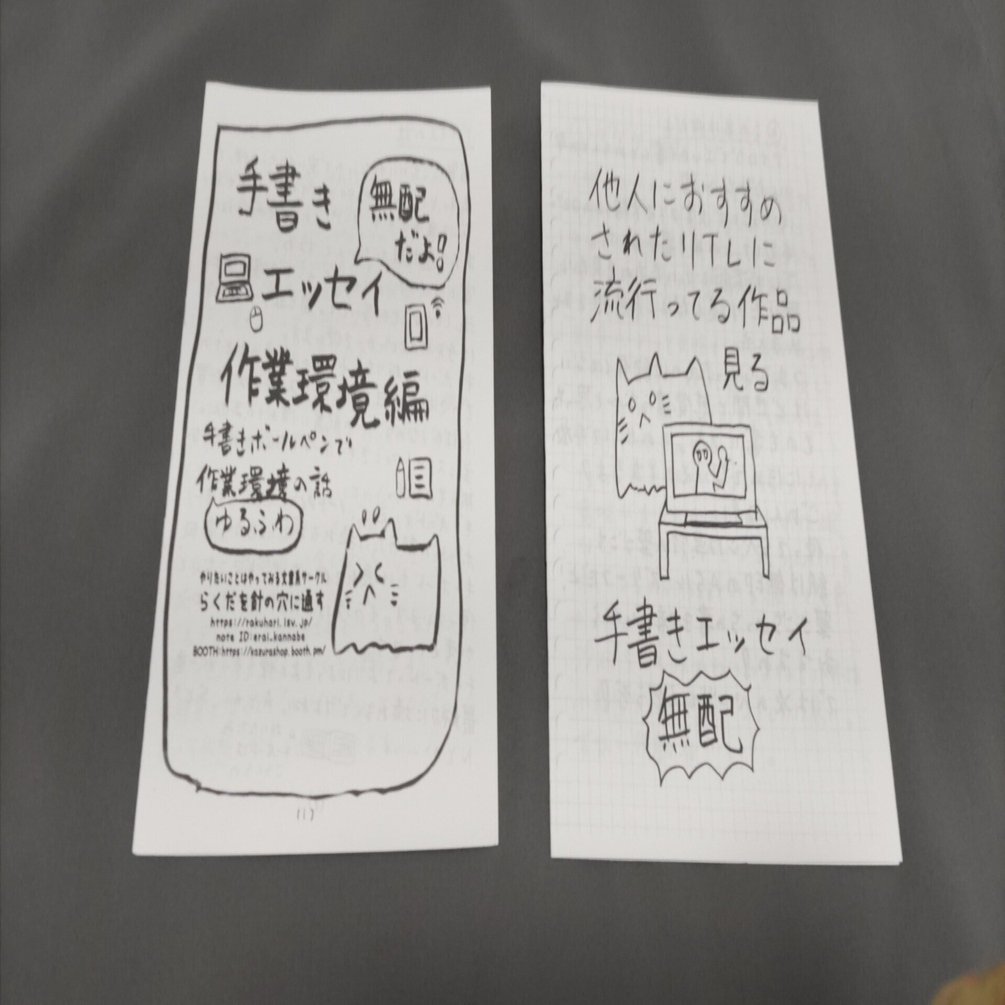 手書き
無配
だよ!
エッセイ
作業環境編
手書きボールペンで
作業環境の話
ゆるふわ
やりたいことはやってみる文章系サークル
らくだを針の穴に通す
https://rakuhari.1sv.jp/
note ID:erai_kannabe
BOOTH:https://kazurashop.booth.pm/
他人におすすめ
されたりTLに
流行ってる作品
見る
手書きエッセイ
無配